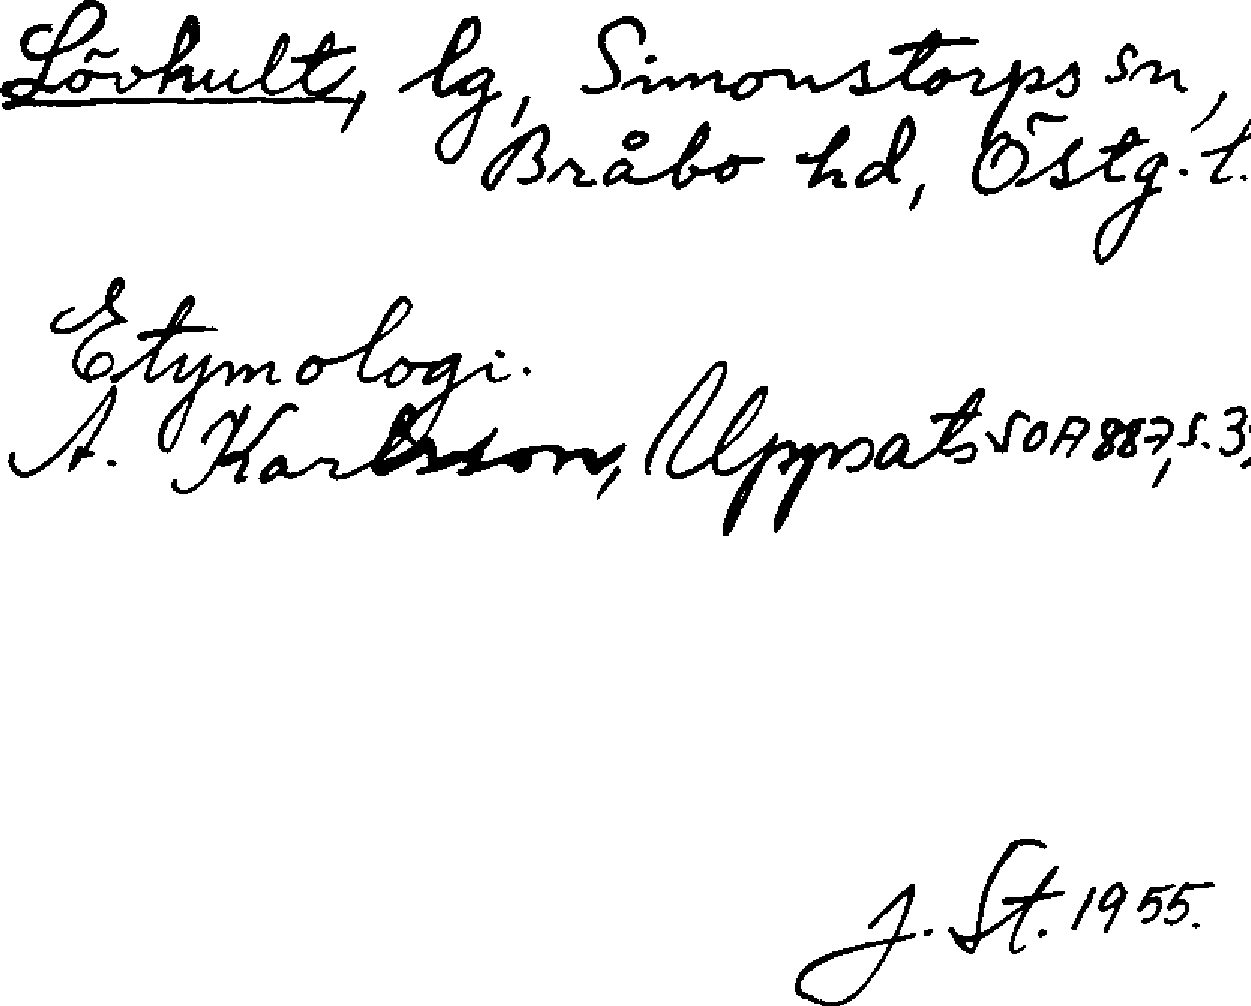 Lövhult, lg, Simonstorps sn,
Bråbo hd, Östg. l.
Etymologi.
A. Karlsson, Uppsats SOA 887, s. 3
J. St. 1955.